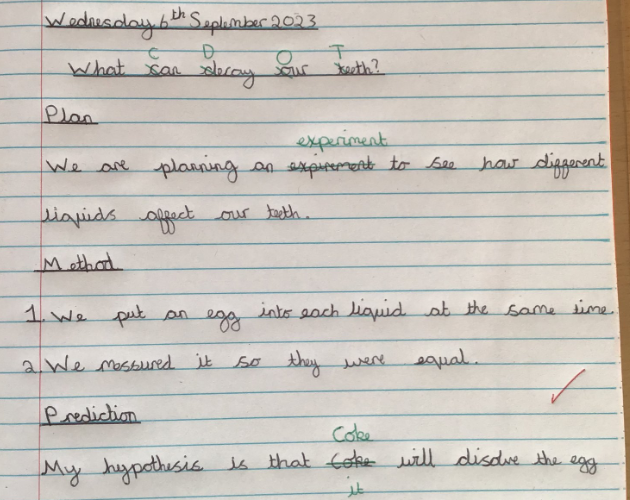 Wednesday 6th September 2023
C D O T
What can decay our teeth?
Plan
experiment
We are planning an expirement to see how different
liquids affect our teeth.
Method
1. We put an egg into each liquid at the same time.
2 We messured it so they were equal.
Prediction
Coke
My hypothesis is that Coke will disolve the egg
it